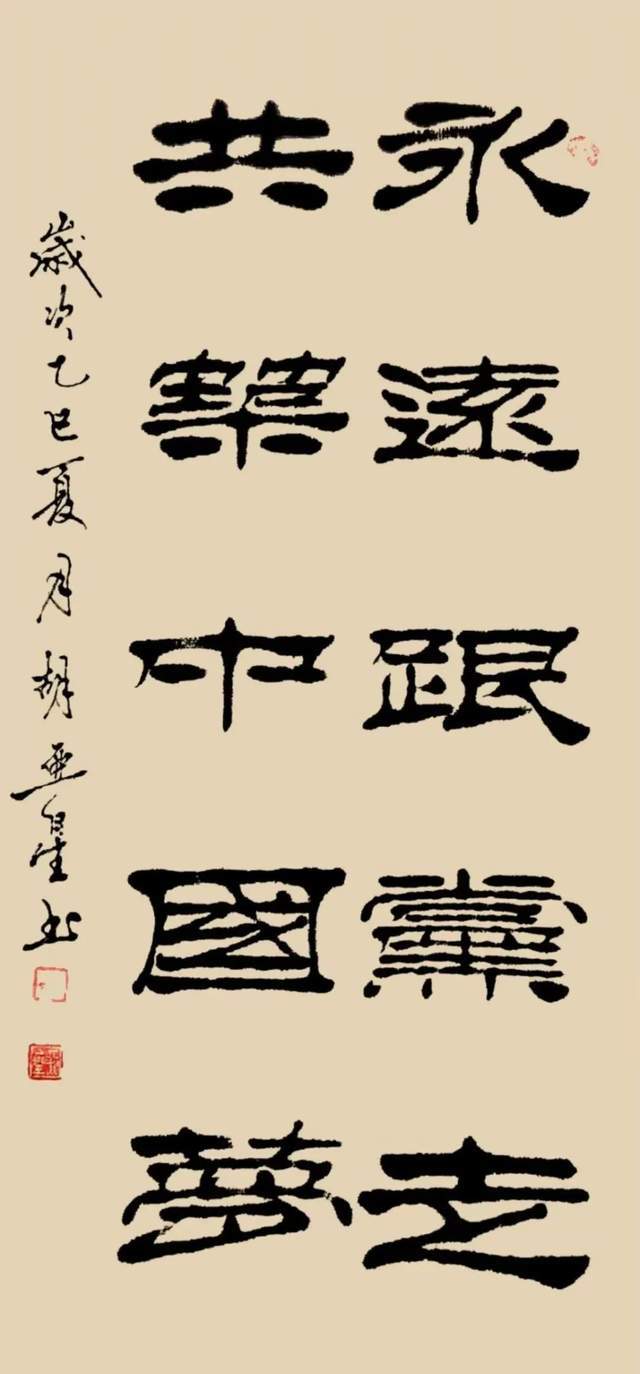 永遠跟黨走
共築中國夢
歲次乙巳夏月胡亞星书